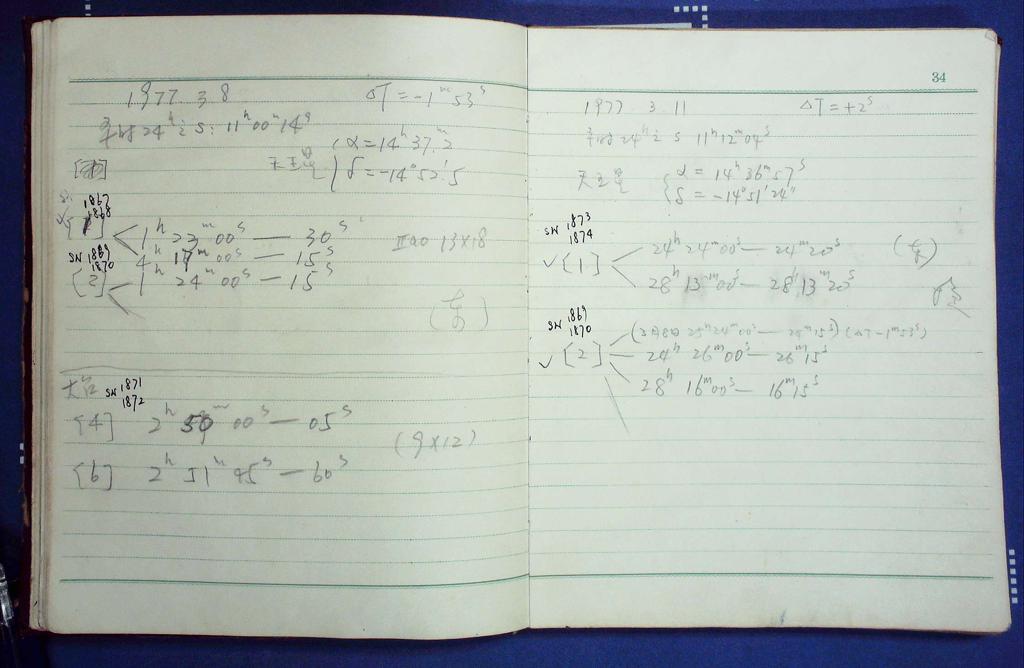 1977 3 8 ΔT=-1ᵐ53ˢ
平时24ʰ之S: 11ʰ00ᵐ14ˢ
天王星 α=14ʰ37ᵐ.2
δ=-14°52'.5
SN 1867
1868
[1] 1ʰ 23ᵐ 00ˢ — 30ˢ
4ʰ 17ᵐ 00ˢ — 15ˢ
IIao 13×18
SN 1869
1870
[2] 1ʰ 24ᵐ 00ˢ — 15ˢ
(东)
SN 1871
1872
[4] 2ʰ 50ᵐ 00ˢ — 05ˢ
(9×12)
[6] 2ʰ 51ᵐ 45ˢ — 60ˢ
34
1977 3 11 ΔT=+2ˢ
平时24ʰ之S 11ʰ12ᵐ04ˢ
天王星 α = 14ʰ36ᵐ57ˢ
δ = -14°51'24"
SN 1873
1874
√[1] 24ʰ 24ᵐ00ˢ — 24ᵐ20ˢ (东)
28ʰ 13ᵐ00ˢ — 28ʰ13ᵐ20ˢ
SN 1869
1870
(2月8日 25ʰ24ᵐ00ˢ — 24ᵐ15ˢ) (ΔT-1ᵐ53ˢ)
√[2] 24ʰ 26ᵐ00ˢ — 26ᵐ15ˢ
28ʰ 16ᵐ00ˢ — 16ᵐ15ˢ